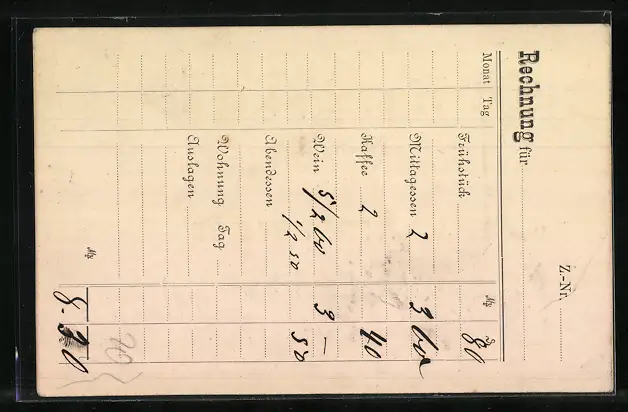 Z.-Nr.
Rechnung für
Monat Tag Mk. ₰
Frühstück 80
Mittagessen 2 3 60
Kaffee 2 40
Wein 5/2 60 3 —
1/2 50 50
Abendessen
Wohnung Tag
Auslagen
Mk. 8. 30